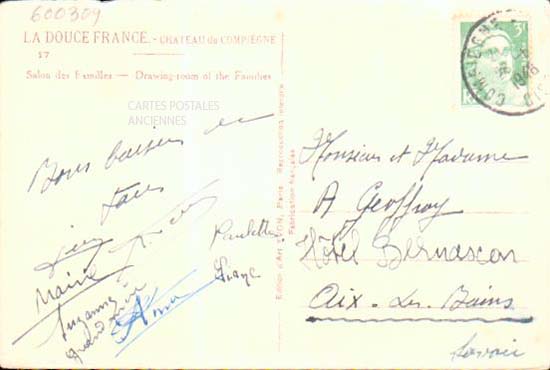 600309
LA DOUCE FRANCE. - CHATEAU de COMPIÈGNE
17
Salon des Familles — Drawing-room of the Families
CARTES POSTALES
ANCIENNES
Bons baisers
Paulette
Suzanne
Edition d'Art YVON, Paris. Reproduction interdite
Fabrication française
COMPIEGNE
1946
Monsieur et Madame
A Geoffroy
Hôtel Bernascon
Aix-Les-Bains
Savoie